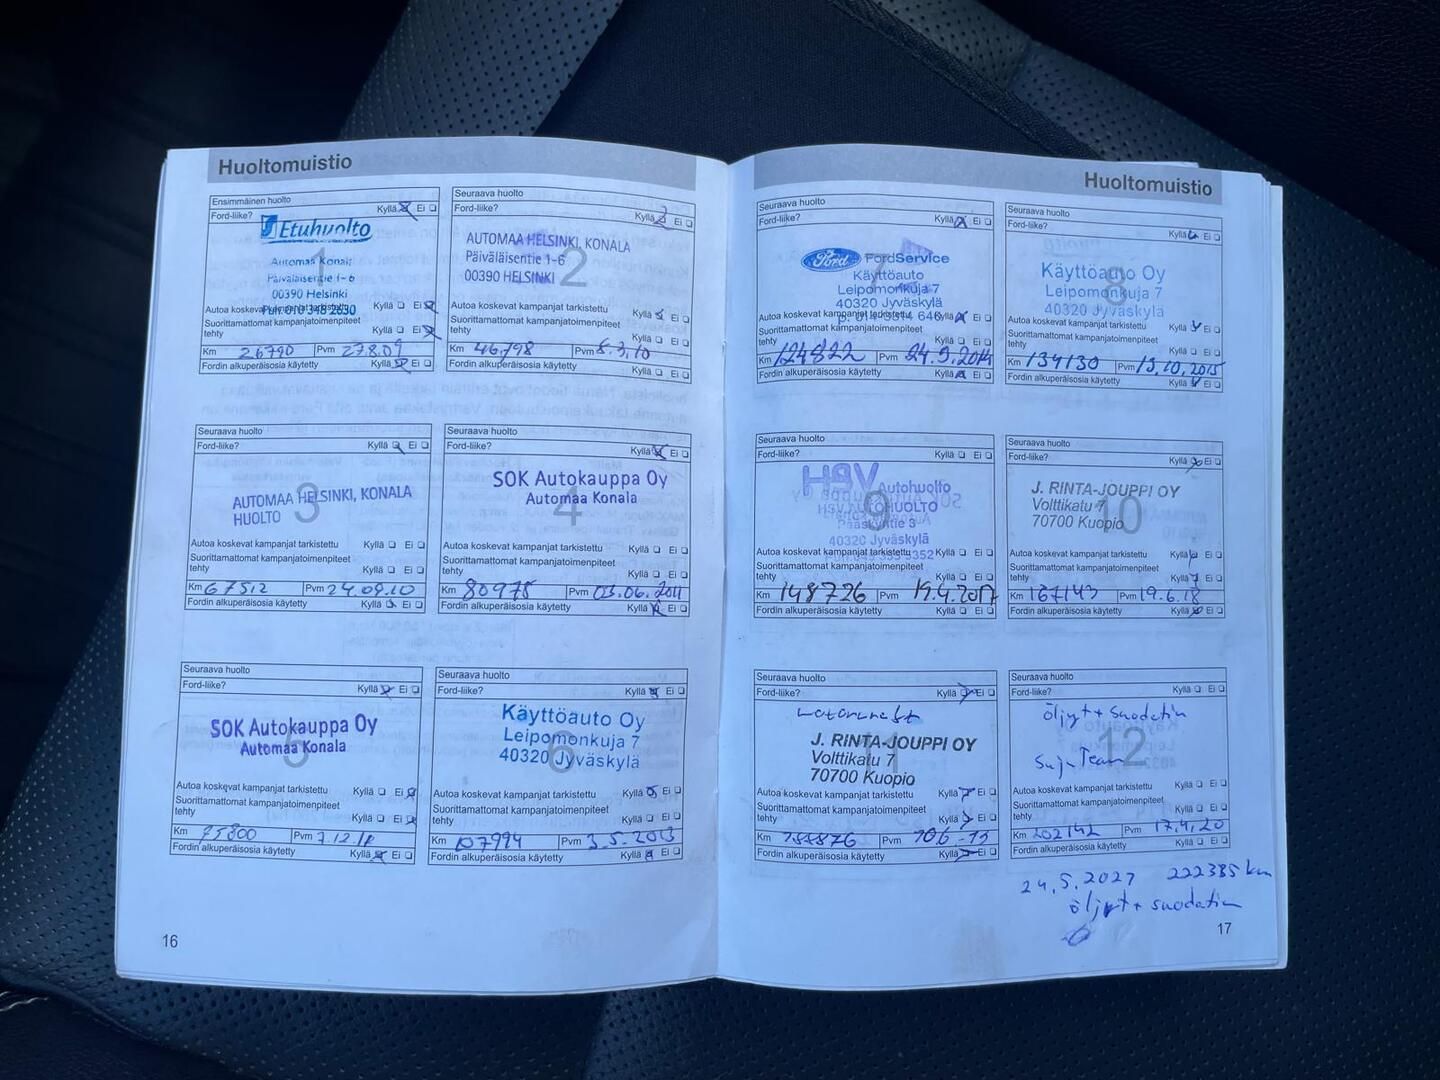 Huoltomuistio
Ensimmäinen huolto
Ford-liike? Kyllä Ei
Etuhuolto
1
Automaa Konala
Päiväläisentie 1-6
00390 Helsinki
Puh. 010 348 2830
Autoa koskevat kampanjat tarkistettu Kyllä Ei
Suorittamattomat kampanjatoimenpiteet
tehty Kyllä Ei
Km 26790 Pvm 27.8.09
Fordin alkuperäisosia käytetty Kyllä Ei
Seuraava huolto
Ford-liike? Kyllä Ei
2
AUTOMAA HELSINKI, KONALA
Päiväläisentie 1-6
00390 HELSINKI
Autoa koskevat kampanjat tarkistettu Kyllä Ei
Suorittamattomat kampanjatoimenpiteet
tehty Kyllä Ei
Km 46798 Pvm 8.3.10
Fordin alkuperäisosia käytetty Kyllä Ei
Seuraava huolto
Ford-liike? Kyllä Ei
3
AUTOMAA HELSINKI, KONALA
HUOLTO
Autoa koskevat kampanjat tarkistettu Kyllä Ei
Suorittamattomat kampanjatoimenpiteet
tehty Kyllä Ei
Km 67512 Pvm 24.09.10
Fordin alkuperäisosia käytetty Kyllä Ei
Seuraava huolto
Ford-liike? Kyllä Ei
SOK Autokauppa Oy
Automaa Konala
4
Autoa koskevat kampanjat tarkistettu Kyllä Ei
Suorittamattomat kampanjatoimenpiteet
tehty Kyllä Ei
Km 80975 Pvm 03.06.2011
Fordin alkuperäisosia käytetty Kyllä Ei
Seuraava huolto
Ford-liike? Kyllä Ei
SOK Autokauppa Oy
Automaa Konala
5
Autoa koskevat kampanjat tarkistettu Kyllä Ei
Suorittamattomat kampanjatoimenpiteet
tehty Kyllä Ei
Km Pvm
Fordin alkuperäisosia käytetty Kyllä Ei
Seuraava huolto
Ford-liike? Kyllä Ei
Käyttöauto Oy
Leipomonkuja 7
40320 Jyväskylä
6
Autoa koskevat kampanjat tarkistettu Kyllä Ei
Suorittamattomat kampanjatoimenpiteet
tehty Kyllä Ei
Km 107994 Pvm 3.5.2013
Fordin alkuperäisosia käytetty Kyllä Ei
16
Huoltomuistio
Seuraava huolto
Ford-liike? Kyllä Ei
Ford FordService
7
Käyttöauto
Leipomonkuja 7
40320 Jyväskylä
Autoa koskevat kampanjat tarkistettu Kyllä Ei
Suorittamattomat kampanjatoimenpiteet
tehty Kyllä Ei
Km 124822 Pvm 24.9.2014
Fordin alkuperäisosia käytetty Kyllä Ei
Seuraava huolto
Ford-liike? Kyllä Ei
8
Käyttöauto Oy
Leipomonkuja 7
40320 Jyväskylä
Autoa koskevat kampanjat tarkistettu Kyllä Ei
Suorittamattomat kampanjatoimenpiteet
tehty Kyllä Ei
Km 134130 Pvm 13.10.2015
Fordin alkuperäisosia käytetty Kyllä Ei
Seuraava huolto
Ford-liike? Kyllä Ei
HSV Autohuolto
9
HSV AUTOHUOLTO
Pääskyntie 3
40320 Jyväskylä
Autoa koskevat kampanjat tarkistettu Kyllä Ei
Suorittamattomat kampanjatoimenpiteet
tehty Kyllä Ei
Km 148726 Pvm 19.4.2017
Fordin alkuperäisosia käytetty Kyllä Ei
Seuraava huolto
Ford-liike? Kyllä Ei
J. RINTA-JOUPPI OY
Volttikatu 7
70700 Kuopio
10
Autoa koskevat kampanjat tarkistettu Kyllä Ei
Suorittamattomat kampanjatoimenpiteet
tehty Kyllä Ei
Km 167143 Pvm 19.6.18
Fordin alkuperäisosia käytetty Kyllä Ei
Seuraava huolto
Ford-liike? Kyllä Ei
J. RINTA-JOUPPI OY
Volttikatu 7
70700 Kuopio
11
Autoa koskevat kampanjat tarkistettu Kyllä Ei
Suorittamattomat kampanjatoimenpiteet
tehty Kyllä Ei
Km Pvm
Fordin alkuperäisosia käytetty Kyllä Ei
Seuraava huolto
Ford-liike? Kyllä Ei
öljyt + suodatin
12
Autoa koskevat kampanjat tarkistettu Kyllä Ei
Suorittamattomat kampanjatoimenpiteet
tehty Kyllä Ei
Km 202142 Pvm 17.4.20
Fordin alkuperäisosia käytetty Kyllä Ei
24.5.2021 222385 km
öljyt + suodatin
17